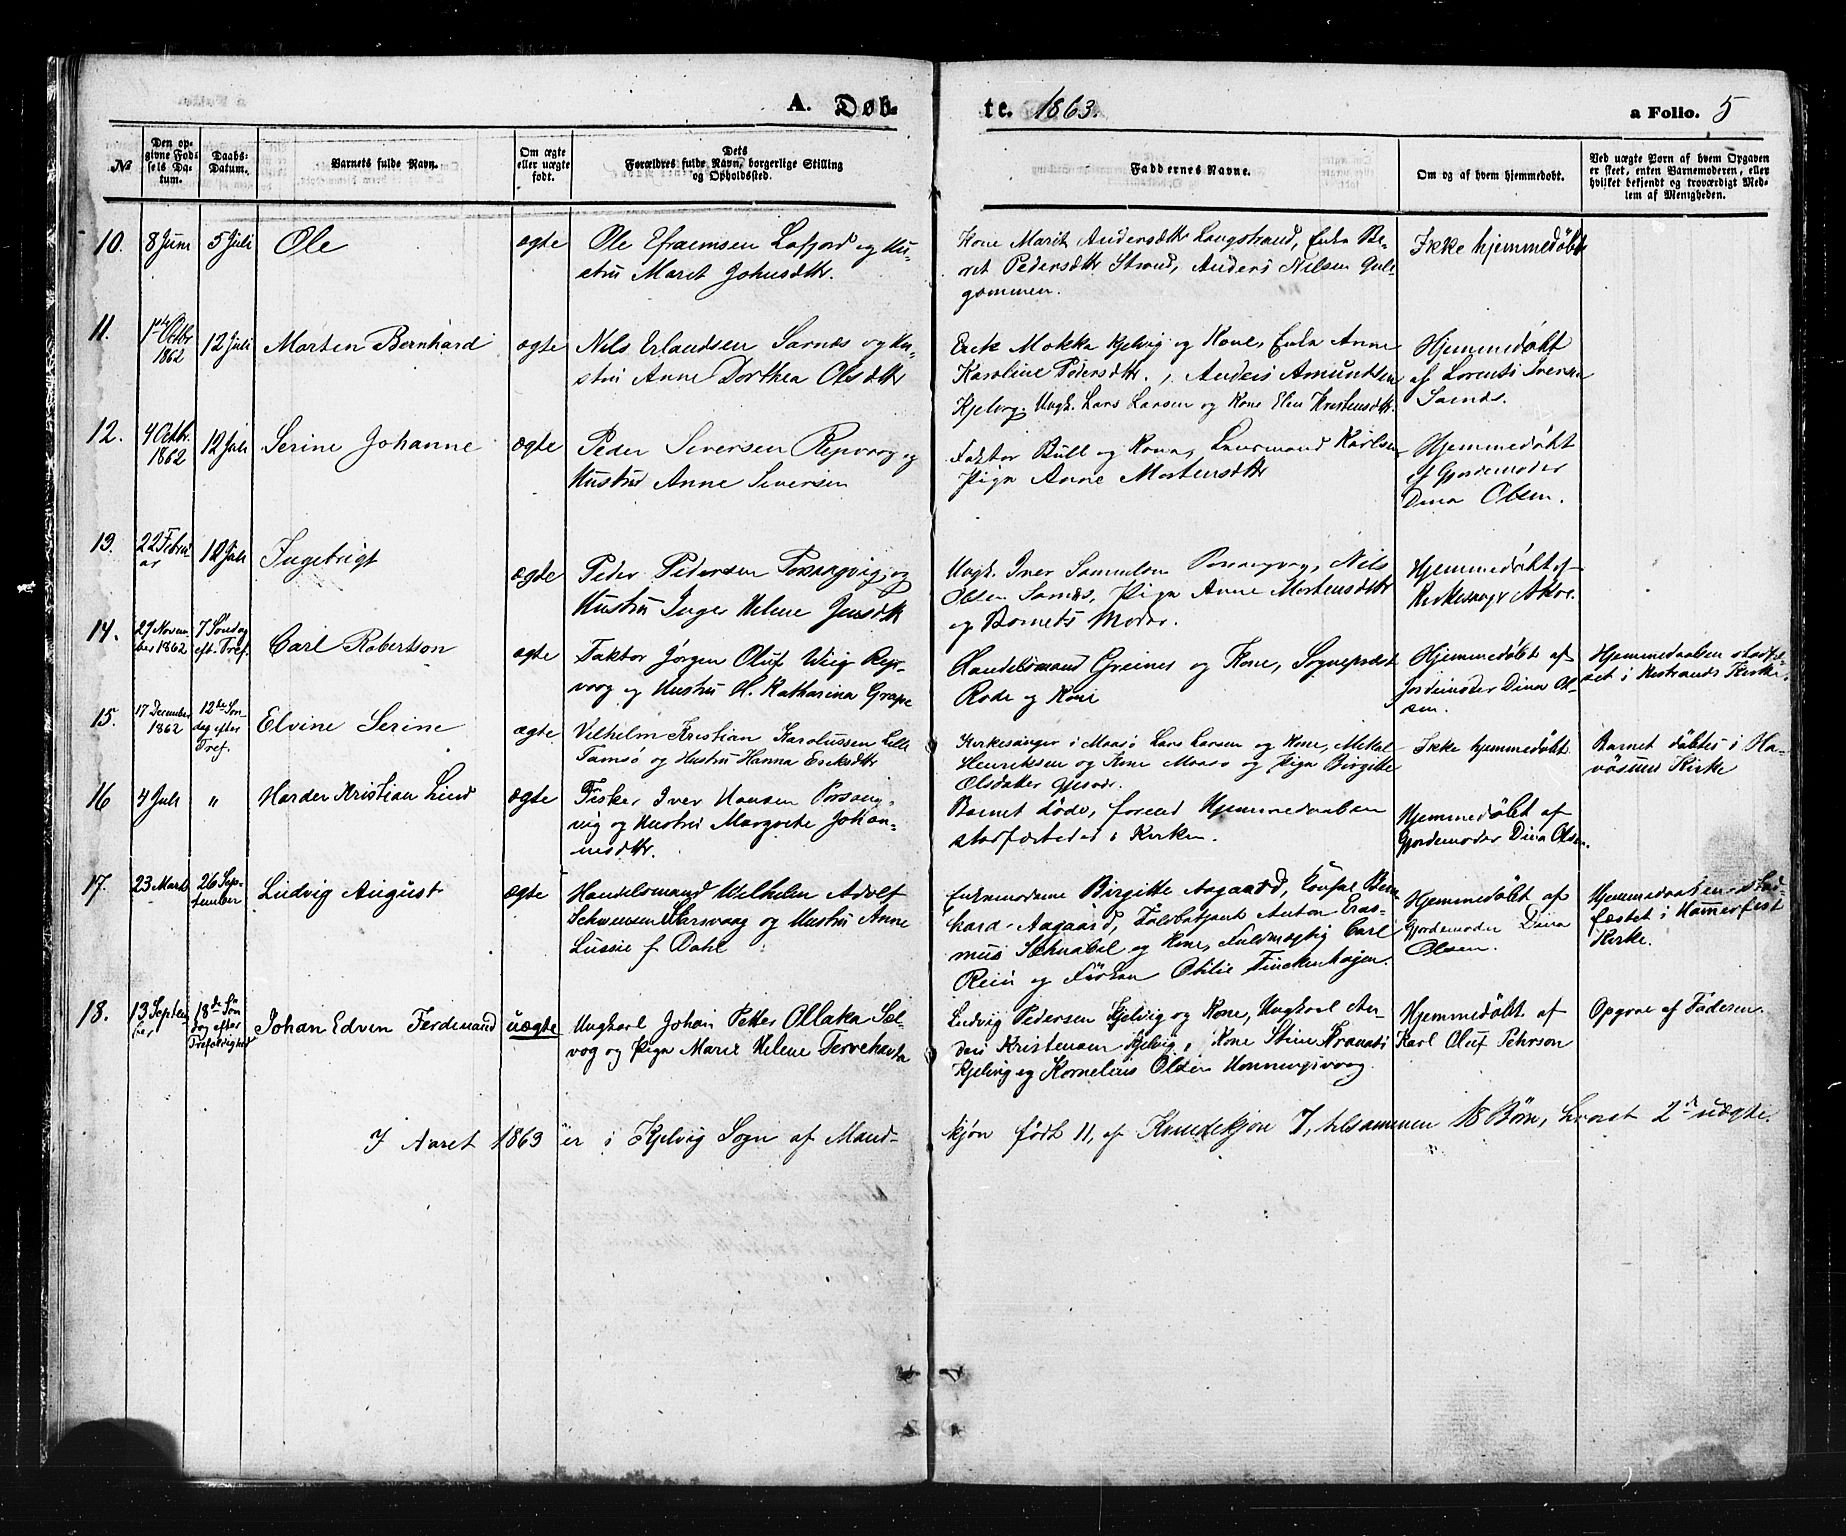 A. Døb-
te. 1863.
a Folio. 5
№
Den op-
givne Fød-
sels Da-
tum.
Daabs-
Datum.
Barnets fulde Navn.
Om ægte
eller uægte
født.
Dets
Forældres fulde Navn, borgerlige Stilling
og Opholdssted.
Faddernes Navne.
Om og af hvem hjemmedøbt.
Ved uægte Børn af hvem Opgaven
er skeet, enten Barnemoderen, eller
hvilket bekjendt og troværdigt Med-
lem af Menigheden.
10.
8 Juni
5 Juli
Ole
ægte
Ole Efraemsen Lafjord og Hu-
stru Marit Johnsdtr.
Kone Marit Andersdttr Langstrand, Enke Be-
ret Pedersdttr Strand, Anders Nilsen Gul
gammen.
Ikke hjemmedøbt
11.
1ste Octbr
1862
12 Juli
Morten Bernhard
ægte
Nils Erlandsen Sarnæs og Hu-
stru Anne Dorthea Olsdttr
Erik Mokke Kjelvig og Kone, Enke Anne
Karoline Pedersdttr., Anders Amundsen
Kjelvig, Ungk. Lars Larsen og Kone Elen Kristensdttr.
Hjemmedøbt
af Lorents Svensen
Sarnæs.
12.
4 Octbr.
1862
12 Juli
Serine Johanne
ægte
Peder Siversen Repvaag og
Hustru Anne Siversen
Faktor Bull og Kone, Karlsen
Pige Anne Mortensdttr
Hjemmedøbt
af Gjordemoder
Dina Olsen.
13.
22 Febru
ar
12 Juli
Ingebrigt
ægte
Peder Pedersen Porsangvig og
Hustru Inger Helene Jensdttr
Ungk. Iver Samuelsen Porsangvig, Nils
Olsen Sarnæs, Pige Anne Mortensdttr
og Barnets Moder.
Hjemmedøbt af
Kirkesanger Akre.
14.
29 Novem
ber 1862
7 Søndag
eft. Tref.
Carl Robertson
ægte
Faktor Jørgen Oluf Wiig Rep-
vaag og Hustru H. Katharina Grape
Handelsmand Greines og Kone, Sognepræst
Rode og Kone
Hjemmedøbt af
Jordemoder Dina Ol-
sen.
Hjemmedaaben stadfæ-
stet i Kistrands Kirke.
15.
17 December
1862
12te Søn-
dag efter
Tref.
Elvine Serine
ægte
Vilhelm Kristian Karolussen Lille
Tamsø og Hustru Hanna Eriksdttr
Kirkesanger i Maasø Lars Larsen og Kone, Mikal
Henriksen og Kone Maasø og Pige Birgitte
Olsdatter Gjesvær.
Ikke hjemmedøbt
Barnet døbtes i Ha-
vøsund Kirke
16
4 Juli
"
Harder Kristian Lind
ægte
Fisker Iver Hansen Porsang-
vig og Hustru Margrethe Johan-
nesdttr.
Barnet døde, forend Hjemmedaaben
stadfæstedes i Kirken.
Hjemmedøbt af
Gjordemoder Dina Olsen.
17.
23 Marts
26 Sep-
tember
Ludvig August
ægte
Handelsmand Wilhelm Adolf
Schwensen Skarsvaag og Hustru Anne
Lussie f. Dahl
Enkemadame Birgitte Aagaard, Consul Bern
hard Aagaard, Toldbetjent Anton Eras-
mus Schnabel og Kone, Fuldmægtig Carl
Rein og Frøken Otilie Finckenhagen.
Hjemmedøbt af
Gjordemoder Dina
Olsen.
Hjemmedaaben stad
fæstet i Hammerfest
Kirke.
18.
13 Septem
ber
18de Søn
dag efter
Trefoldighed
Johan Edvin Ferdinand
uægte
Ungkarl Johan Petter Ollaka Sæl-
vog og Pige Marie Helene
Ludvig Pedersen Kjelvig og Kone, Ungkarl An
ders Kristensen Kjelvig, Kone Stine
Kjelvig og Kornelius Olsen Honningsvaag.
Hjemmedøbt af
Karl Oluf Pehrson
Opgave af Faderen.
I Aaret 1863 er i Kjelvig Sogn af Mand-
kjøn født 11, af Kvindekjøn 7, tilsammen 18 Børn, hvoraf 2de uægte.